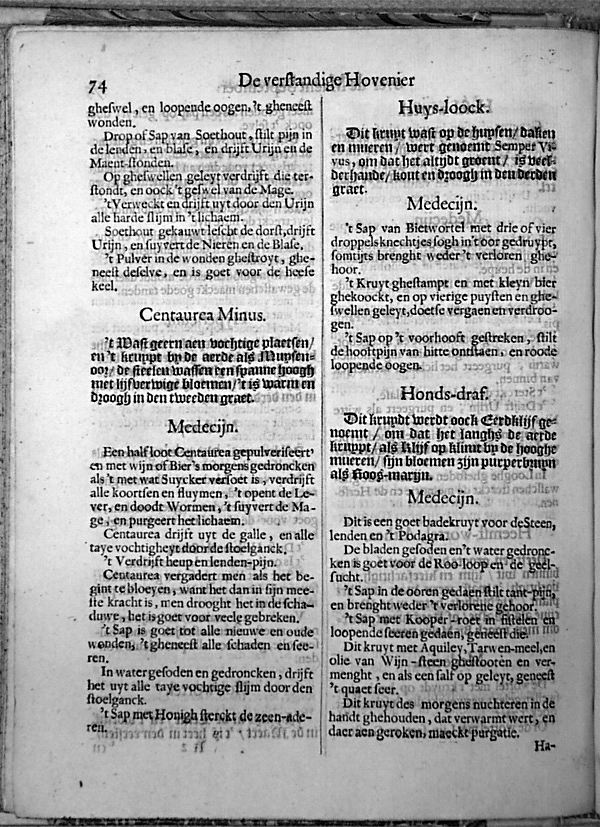 74
De verstandige Hovenier
gheswel, en loopende oogen, 't gheneest
wonden.
Drop of Sap van Soethout, stilt pijn in
de lenden, en blase, en drijft Urijn en de
Maent-stonden.
Op gheswellen geleyt verdrijft die ter-
stondt, en oock 't geswel van de Mage.
't Verweckt en drijft uyt door den Urijn
alle harde slijm in 't lichaem.
Soethout gekauwt lescht de dorst, drijft
Urijn, en suyvert de Nieren en de Blase.
't Pulver in de wonden ghestroyt, ghe-
neest deselve, en is goet voor de heese
keel.
Centaurea Minus.
't Wast geern aen vochtige plaetsen/
en 't kruypt by de aerde als Muysen-
oor/ de steelen wassen een spanne hoogh
met lijfverwige bloemen/ 't is warm en
droogh in den tweeden graet.
Medecijn.
Een half loot Centaurea gepulveriseert
en met wijn of Bier 's morgens gedroncken
als 't met wat Suycker versoet is, verdrijft
alle koortsen en fluymen, 't opent de Le-
ver, en doodt Wormen, 't suyvert de Ma-
ge, en purgeert het lichaem.
Centaurea drijft uyt de galle, en alle
taye vochtigheyt door de stoelganck.
't Verdrijft heup en lenden-pijn.
Centaurea vergadert men als het be-
gint te bloeyen, want het dan in sijn mee-
ste kracht is, men drooght het in de scha-
duwe, het is goet voor veele gebreken.
't Sap is goet tot alle nieuwe en oude
wonden, 't gheneest alle schaden en see-
ren.
In water gesoden en gedroncken, drijft
het uyt alle taye vochtige slijm door den
stoelganck.
't Sap met Honigh sterckt de zeen-ade-
ren.
Huys-loock.
Dit kruyt wast op de huysen/ daken
en mueren/ wert genoemt Semper Vi-
vus, om dat het altydt groent/ is veel-
derhande/ kout en droogh in den derden
graet.
Medecijn.
't Sap van Bietwortel met drie of vier
droppels knechtjes sogh in't oor gedruypt,
somtijts brenght weder 't verloren ghe-
hoor.
't Kruyt ghestampt en met kleyn bier
ghekoockt, en op vierige puysten en ghe-
swellen geleyt, doetse vergaen en verdroo-
gen.
't Sap op 't voorhooft gestreken, stilt
de hooftpijn van hitte ontstaen, en roode
loopende oogen.
Honds-draf.
Dit kruydt werdt oock Eerdklijf ge-
noemt/ om dat het langhs de aerde
kruypt/ als Klijf op klimt by de hooghe
mueren/ sijn bloemen zijn purperbruyn
als Roos-marijn.
Medecijn.
Dit is een goet badekruyt voor de Steen,
lenden en 't Podagra.
De bladen gesoden en't water gedronc-
ken is goet voor de Roo-loop en de geel-
sucht.
't Sap in de ooren gedaen stilt tant-pijn,
en brenght weder 't verlorene gehoor.
't Sap met Kooper-roet in fistelen en
loopende seeren gedaen, geneest die.
Dit kruyt met Aquiley, Tarwen-meel, en
olie van Wijn-steen ghestooten en ver-
menght, en als een salf op geleyt, geneest
't quaet seer.
Dit kruyt des morgens nuchteren in de
handt ghehouden, dat verwarmt wert, en
daer aen geroken, maeckt purgatie.
Ha-